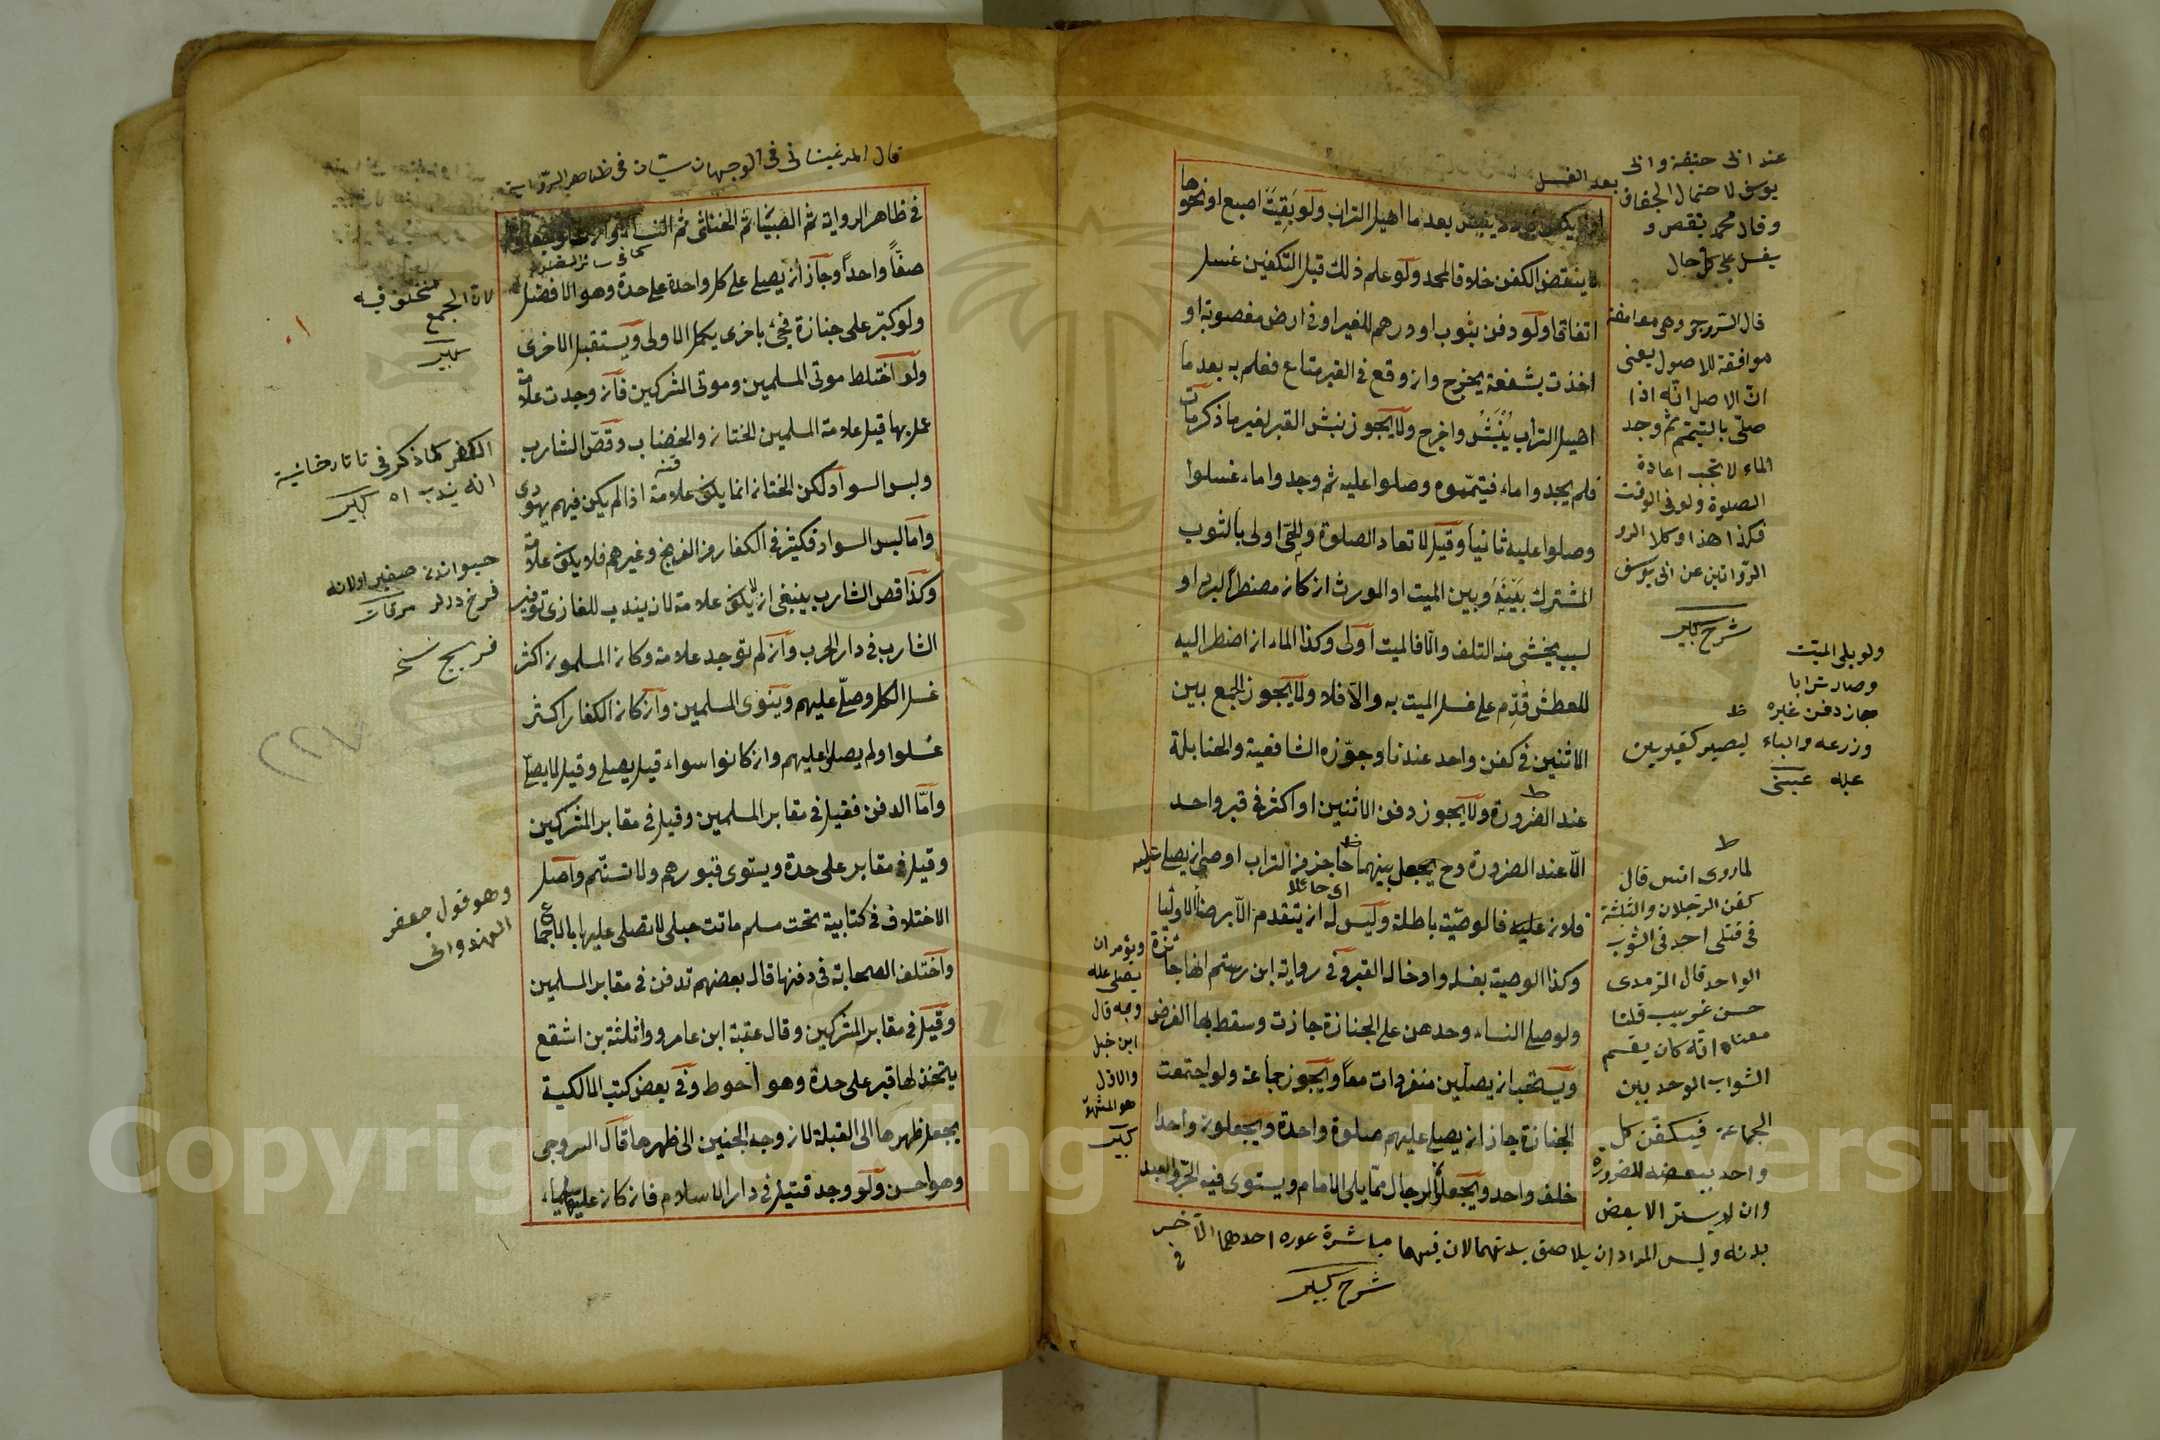 بعد الغسل
او لم يكفن ولا ينبش بعد ما اهيل التراب ولو بقيت اصبع او نحوها
لا ينقض الكفن خلافا لمحمد ولو علم ذلك قبل التكفين غسل
اتفاقا ولو دفن بثوب او درهم للغير او في ارض مغصوبة او
اخذت بشفعة يخرج وان وقع في القبر متاع فعلم به بعد ما
اهيل التراب ينبش واخرج ولا يجوز نبش القبر لغير ما ذكر مات
فلم يجدوا ماء فيتمموه وصلوا عليه ثم وجدوا ماء غسلوا
وصلوا عليه ثانيا وقيل لا تعاد الصلوة وللحي اولى بالثوب
المشترك بينه وبين الميت او المورث ان كان مضطرا لبرد او
لسبب يخشى منه التلف والا فالميت اولى وكذا الماء ان اضطر اليه
للعطش قدم على غسل الميت به والا فلا ولا يجوز الجمع بين
الاثنين في كفن واحد عندنا وجوزه الشافعية والحنابلة
عند الضرورة ولا يجوز دفن الاثنين او اكثر في قبر واحد
الا عند الضرورة وح يجعل بينهما حاجز من التراب اوصى ان يصلى عليه
اى حائلا
فلان عليه فالوصية باطلة وليس له ان يتقدم الا برضا الاوليا
وكذا الوصية بغسله وادخال القبر وفي رواية ابن رستم انها جائزة
ولو صلى النساء وحدهن على الجنازة جازت وسقط بها الفرض
ويستحب ان يصلين منفردات معا ويجوز جماعة ولو اجتمعت
الجنازة جاز ان يصلى عليهم صلوة واحدة ويجعلون واحدا
خلف واحد ويجعل الرجال مما يلى الامام ويستوى فيه الحر والعبد
عند ابى حنيفة وابى
يوسف لاحتمال الجفاف
وقال محمد ينقض و
يغسل على كل حال
قال السروجى وهى
موافقة للاصول يعنى
ان الاصل انه اذا
صلى بالتيمم ثم وجد
الماء لا تجب اعادة
الصلوة ولو في الوقت
فكذا هذا وكلا
الروايتين عن ابى يوسف
شرح كبير
ولو بلى الميت
وصار ترابا
جاز دفن غيره
وزرعه والبناء
عليه عينى
ليصير كقبرين
لما روى انس قال
كفن الرجلان والثلثة
في قتلى احد في الثوب
الواحد قال الترمذى
حسن غريب قلنا
معناه انه كان يقسم
الثواب الوحد بين
الجماعة فيكفن كل
واحد ببعضه للضرورة
وان لا يستر الا بعض
بدنه وليس المراد ان يلاصق بدنهما لان فيهما مباشرة عورة احدهما الآخر
شرح كبير
ويؤمر ان
يصلى عليه
وبه قال
ابن حنبل
والاول
هو المشهور
كبير
قال المرغينانى في الوجهان سيان في ظاهر الرواية
في ظاهر الرواية ثم الصبيان ثم الخناثى ثم النساء
صفا واحدا وجاز ان يصلى على كل واحدة على حدة وهو الافضل
ولو كبر على جنازة فجئ باخرى يكمل الاولى ويستقبل الاخرى
ولو اختلط موتى المسلمين وموتى المشركين فان وجدت علامة
عمل بها قيل علامة المسلمين الختان والخضاب وقص الشارب
ولبس السواد لكن الختان انما يكون علامة اذا لم يكن فيهم يهودى
واما لبس السواد فكثير في الكفار من الفرنج وغيرهم فلا يكون علامة
وكذا قص الشارب ينبغى ان لا يكون علامة لان يندب للغازى توفير
الشارب في دار الحرب وان لم توجد علامة وكان المسلمون اكثر
غسل الكل وصلى عليهم وينوى المسلمين وان كان الكفار اكثر
غسلوا ولم يصلوا عليهم وان كانوا سواء قيل يصلى وقيل لا يصلى
واما الدفن فقيل في مقابر المسلمين وقيل في مقابر المشركين
وقيل في مقابر على حدة ويستوى قبورهم ولا تسنم واصل
الاختلاف في كتابية تحت مسلم ماتت حبلى لا تصلى عليها بالاجماع
واختلف الصحابة في دفنها قال بعضهم تدفن في مقابر المسلمين
وقيل في مقابر المشركين وقال عقبة ابن عامر وواثلة بن اشقع
يتخذ لها قبر على حدة وهو احوط وفي بعض كتب المالكية
يجعل ظهرها الى القبلة لان وجه الجنين الى ظهرها قال السروجى
وهو احسن ولو وجد قتيل في دار الاسلام فان كان عليه سيماء
لان الجمع مختلف فيه
كبير
انه يندب اه كبير
فرنج نسخ
٢٢٧
وهو قول جعفر
الهندوانى